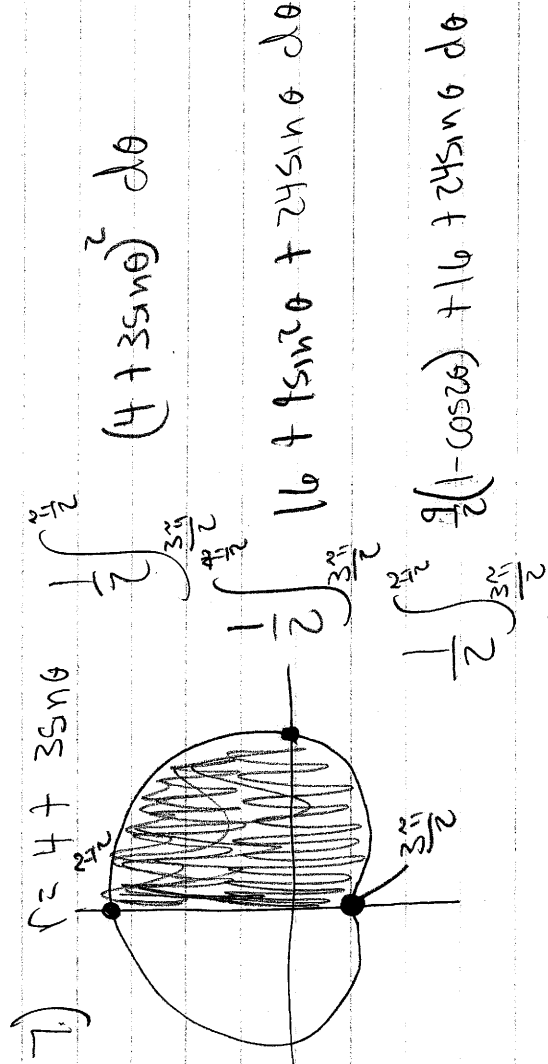 7) r = 4 + 3sinθ
π/2
3π/2
1/2 ∫_{3π/2}^{π/2} (4 + 3sinθ)² dθ
1/2 ∫_{3π/2}^{π/2} 16 + 9sin²θ + 24sinθ dθ
1/2 ∫_{3π/2}^{π/2} 9/2(1-cos2θ) + 16 + 24sinθ dθ